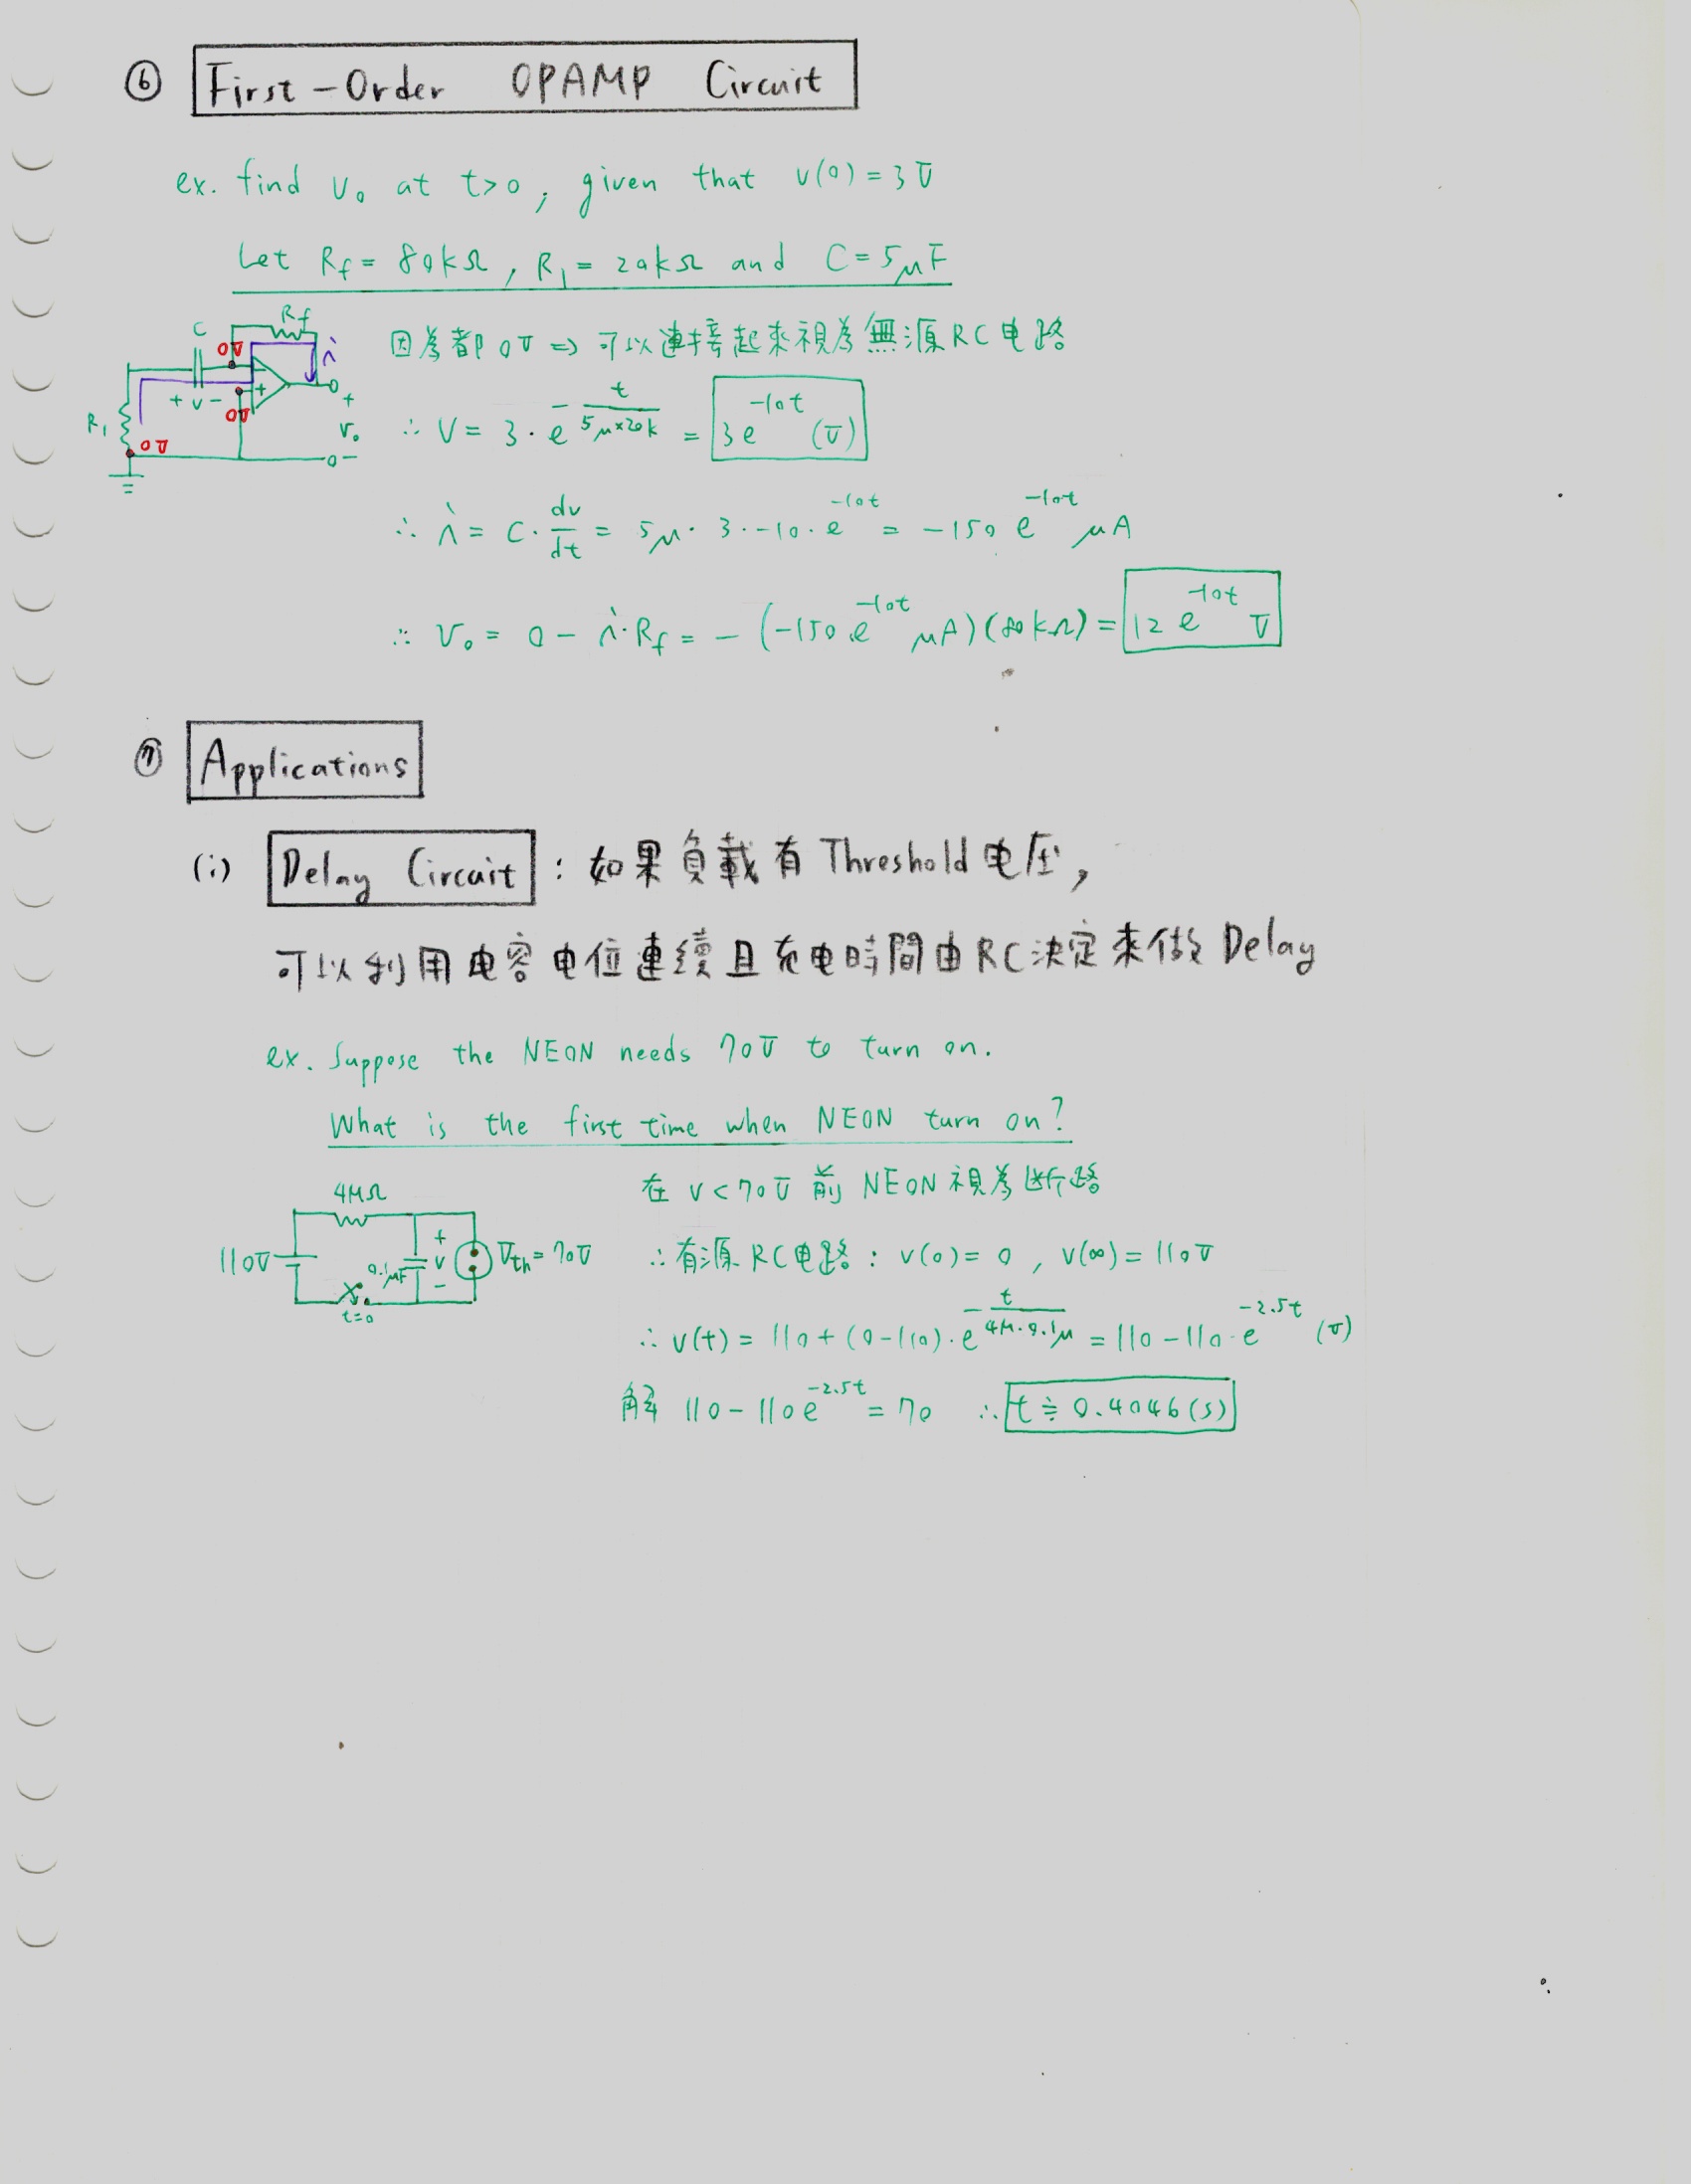 ⑥ First-Order OPAMP Circuit
ex. find v₀ at t>0, given that v(0)=3V
Let Rf=80kΩ, R₁=20kΩ and C=5μF
Rf
C
0V
i
因為都 0V ⇒ 可以連接起來視為無源RC电路
+ v -
0V
R₁
0V
+
v₀
-
∴ V = 3·e^(-t/(5μ×20k)) = 3e^(-10t) (V)
∴ i = C·dv/dt = 5μ·3·-10·e^(-10t) = -150 e^(-10t) μA
∴ V₀ = 0 - i·Rf = -(-150·e^(-10t) μA)(80kΩ) = 12 e^(-10t) V
⑦ Applications
(i) Delay Circuit : 如果負載有 Threshold 电压,
可以利用电容电位連續且充电時間由RC決定來做 Delay
ex. Suppose the NEON needs 70V to turn on.
What is the first time when NEON turn on?
在 v<70V 前 NEON 視為断路
4MΩ
110V
0.1μF
+
v
-
Vth=70V
t=0
∴有源RC电路: v(0)=0, v(∞)=110V
∴ v(t) = 110+(0-110)·e^(-t/(4M·0.1μ)) = 110-110·e^(-2.5t) (V)
解 110-110e^(-2.5t) = 70 ∴ t≒0.4046(s)